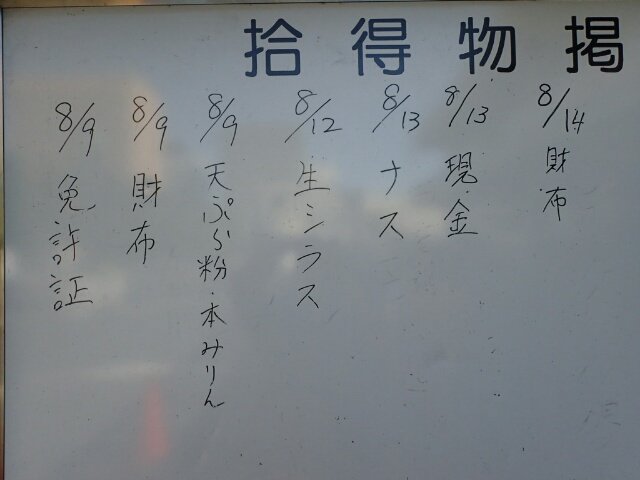 拾得物掲
8/14 財布
8/13 現金
8/13 ナス
8/12 生シラス
8/9 天ぷら粉・本みりん
8/9 財布
8/9 免許証